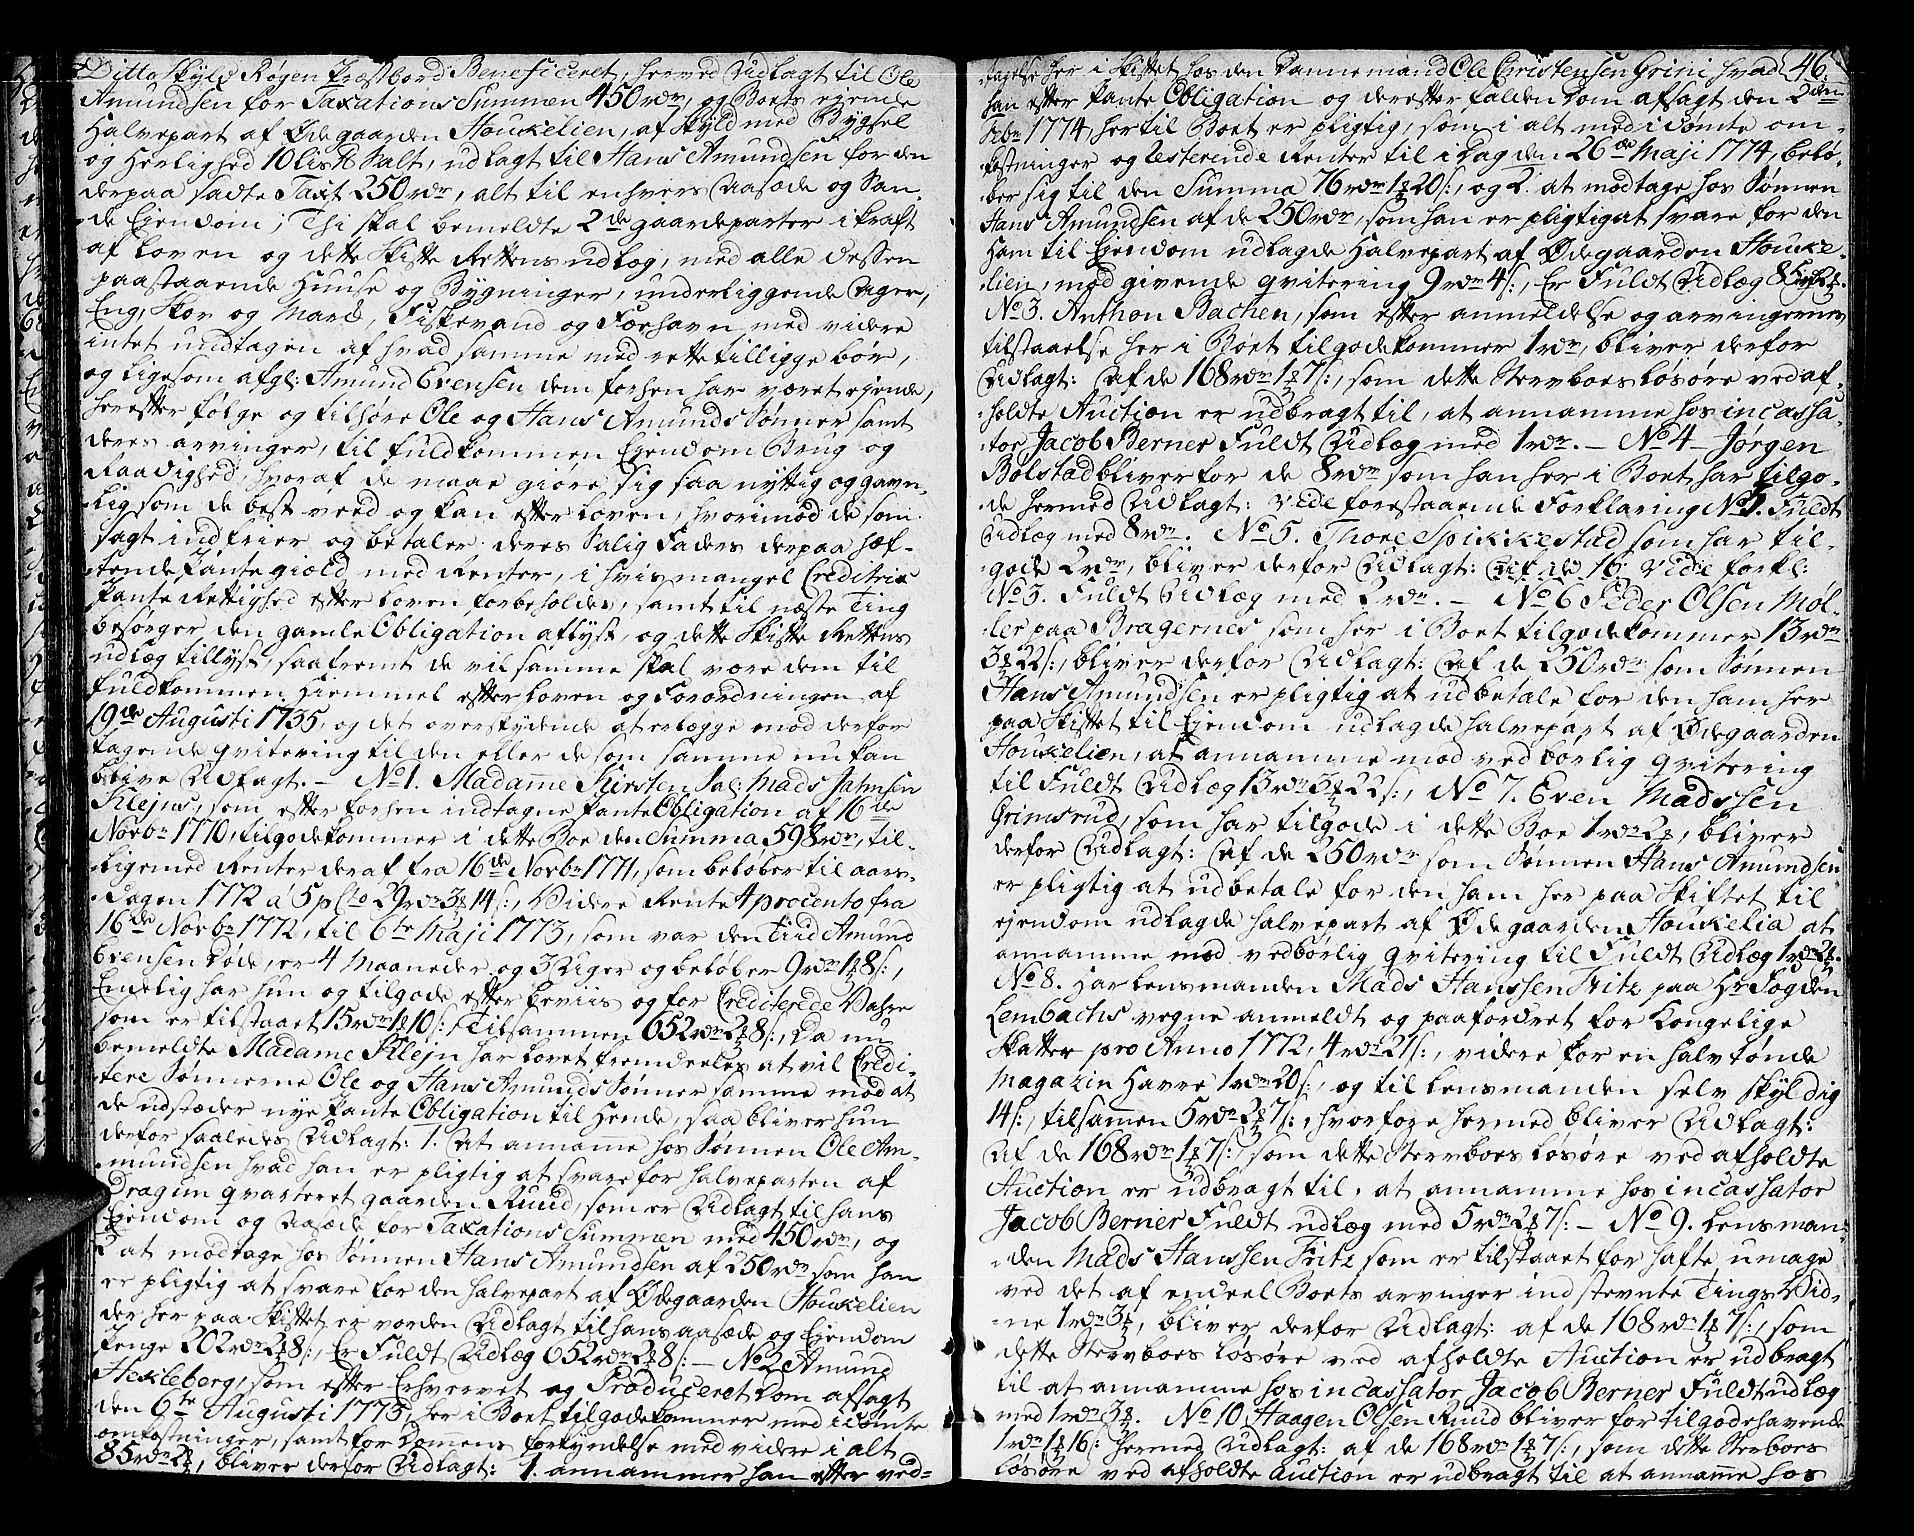 Ditto Skyld Røgen Præstbord Beneficeret, herved Udlagt til Ole
Amundsen for Taxations Summen 450 rdr, og Boets ejende
Halvepart af Ødegaarden Houkelien, af Skyld med Bygsel
og Herlighed 10 lis ℔ Salt, udlagt til Hans Amundsen for den
derpaa sadte Taxt 250 rdr, alt til enhvers Aasæde og San-
de Ejendom; Thi skal bemeldte 2de gaardeparter i kraft
af Loven og dette Skifte Rettens udlæg, med alle dessen
paastaaende Huuse og Bygninger, underliggende Ager,
Eng, Skov og Mark, Fiskevand og Forhavn med videre
intet undtagen af hvad samme med rette tilligge bør,
og ligesom afgl: Amund Evensen dem forhen har været ejende,
herefter følge og tilhøre Ole og Hans Amunds Sønner samt
deres arvinger, til fuldkommen Ejendom Brug og
Raadighed, hvoraf de maae giøre sig saa nyttig og gavn-
lig som de best veed og kan efter Loven, hvorimod de som
sagt indfrier og betaler deres Salig Faders derpaa hæf-
tende Pante giæld med Renter, i hvis mangel Creditrix
Pante Rettighed efter Loven forbeholdes, samt til næste Ting
besørger den gamle Obligation aflyst, og dette Skifte Rettens
udlæg tillyst, saafremt de vil samme skal være dem til
fuldkommen Hiemmel efter Loven og Forordningen af
19de Augusti 1735, og det overskydende at erlægge imod derfor
tagende qvitering til den eller de som samme nu kan
blive Udlagt. – No 1. Madame Kirsten Sal: Mads Jahnsen
Klejns, som efter forhen indtagne Pante Obligation af 16de
Novbr 1770, tilgodekommer i dette Boe den Summa 598 rdr, til-
ligemed Renter deraf fra 16de Novbr 1771, som beløber til aars-
Dagen 1772 á 5 pCto 29 rdr 3 ß 14 s:, Videre Rente 4 procento fra
16de Novbr 1772, til 6te Maji 1773, som var den Tiid Amund
Evensen døde, er 4 Maaneder og 3 Uger og beløber 9 rdr 1 ß 8 s:,
Endelig har hun og tilgode efter beviis og for Crediterede Vahre
som er tilstaaet 15 rdr 1 ß 10 s: Tilsammen 652 rdr 2 ß 8 s:, Da nu
bemeldte Madame Klejn har lovet fremdeeles at vil Credi-
tere Sønnerne Ole og Hans Amunds Sønner samme mod at
de udstæder nye Pante Obligation til Hende, saa bliver hun
derfor saaledes Udlagt: 1. At annamme hos Sønnen Ole Am-
mundsen hvad han er pligtig at svare for halveparten af
Dragun qvarteret gaarden Ruud, som er Udlagt til hans
Ejendom og Aasæde for Taxations Summen med 450 rdr, og
2 at modtage hos Sønnen Hans Amundsen af 250 rdr som han
er pligtig at svare for den halvepart af Ødegaarden Houkelien
der her paa Skiftet er vorden Udlagt til hans aasæde og Ejendom
Penge 202 rdr 2 ß 8 s:, Er Fuldt Udlæg 652 rdr 2 ß 8 s: – No 2 Amund
Hekleberg, som efter Erhvervet og Produceret Dom afsagt
den 6te Augusti 1773, her i Boet tilgodekommer med idømte
omkostninger, samt for Dommens forkyndelse med videre i alt
85 rdr 2 ß, bliver derfor Udlagt: 1. annammer han efter ved-
46.
tagelse her i Skiftet hos den Dannemand Ole Christensen Grini hvad
han efter Pante Obligation og derefter falden Dom afsagt den 2den
Febr 1774, her til Boet er pligtig, som i alt med idømte om-
kostninger og resterende Renter til i Dag den 26de Maji 1774, belø-
ber sig til den Summa 76 rdr 1 ß 20 s:, og 2. at modtage hos Sønnen
Hans Amundsen af de 250 rdr, som han er pligtig at svare for den
Ham til Ejendom udlagde Halvepart af Ødegaarden Houke-
lien, mod givende qvitering 9 rdr 4 s:, Er Fuldt Udlæg 85 rdr 2 ß.
No 3. Anthon Bachen, som efter anmeldelse og arvingernes
tilstaaelse her i Boet tilgodekommer 1 rdr, bliver derfor
Udlagt: Af de 168 rdr 1 ß 7 s:, som dette Stervboes Løsøre ved af-
holdte Auction er udbragt til, at annamme hos incassa-
tor Jacob Berner Fuldt Udlæg med 1 rdr. – No 4 – Jørgen
Bølstad bliver for de 8 rdr som han her i Boet har tilgo-
de hermed Udlagt: Vide forestaaende Forklaring No 1. Fuldt
Udlæg med 8 rdr. No 5. Thore Spikkestad som har til-
gode 2 rdr, bliver derfor Udlagt: Af de 16: Vide forkl:
No 3. Fuldt Udlæg med 2 rdr. – No 6 Peder Olsen Møl-
ler paa Bragernes som her i Boet tilgodekommer 13 rdr
3 ß 22 s:, bliver derfor Udlagt: Af de 250 rdr som Sønnen
Hans Amundsen er pligtig at udbetale for den ham her
paa Skiftet til Ejendom udlagde halvepart af Ødegaarden
Houkelien, at annamme mod vedbørlig qvitering
til Fuldt Udlæg 13 rdr 3 ß 22 s:, No 7. Even Madssen
Grimsrud, som har tilgode i dette Boe 1 rdr 2 ß, bliver
derfor Udlagt: Af de 250 rdr som Sønnen Hans Amundsen
er pligtig at udbetale for den ham her paa Skiftet til
ejendom udlagde halvepart af Ødegaarden Houkelia at
annamme mod vedbørlig qvitering til Fuldt Udlæg 1 rdr 2 ß.
No 8. Har Lensmanden Mads Hanssen Fritz paa Hr Fogden
Lembachs vegne anmeldt og paafordret for Kongelige
Skatter pro Anno 1772, 4 rdr 21 s:, videre for en halv tønde
Magazin Havre 1 rdr 20 s:, og til Lensmanden selv skyldig
14 s:, tilsammen 5 rdr 2 ß 7 s:, hvorfore hermed bliver Udlagt:
Af de 168 rdr 1 ß 7 s:, som dette Stervboes Løsøre ved afholdte
Auction er udbragt til, at annamme hos incassator
Jacob Berner Fuldt udlæg med 5 rdr 2 ß 7 s: – No 9. Lensman-
den Mads Hanssen Fritz som er tilstaaet for hafte umage
ved det af endeel Boets arvinger indstevnte Tings Vid-
ne 1 rdr 3 ß, bliver derfor Udlagt: af de 168 rdr 1 ß 7 s:, som
dette Stervboes Løsøre ved afholdte Auction er udbragt
til at annamme hos incassator Jacob Berner Fuldt udlæg
med 1 rdr 3 ß. No 10, Haagen Olsen Ruud bliver for tilgodehavende
1 rdr 1 ß 16 s: hermed Udlagt: af de 168 rdr 1 ß 7 s:, som dette Sterboes
Løsøre ved afholdte Auction er udbragt til at annamme hos